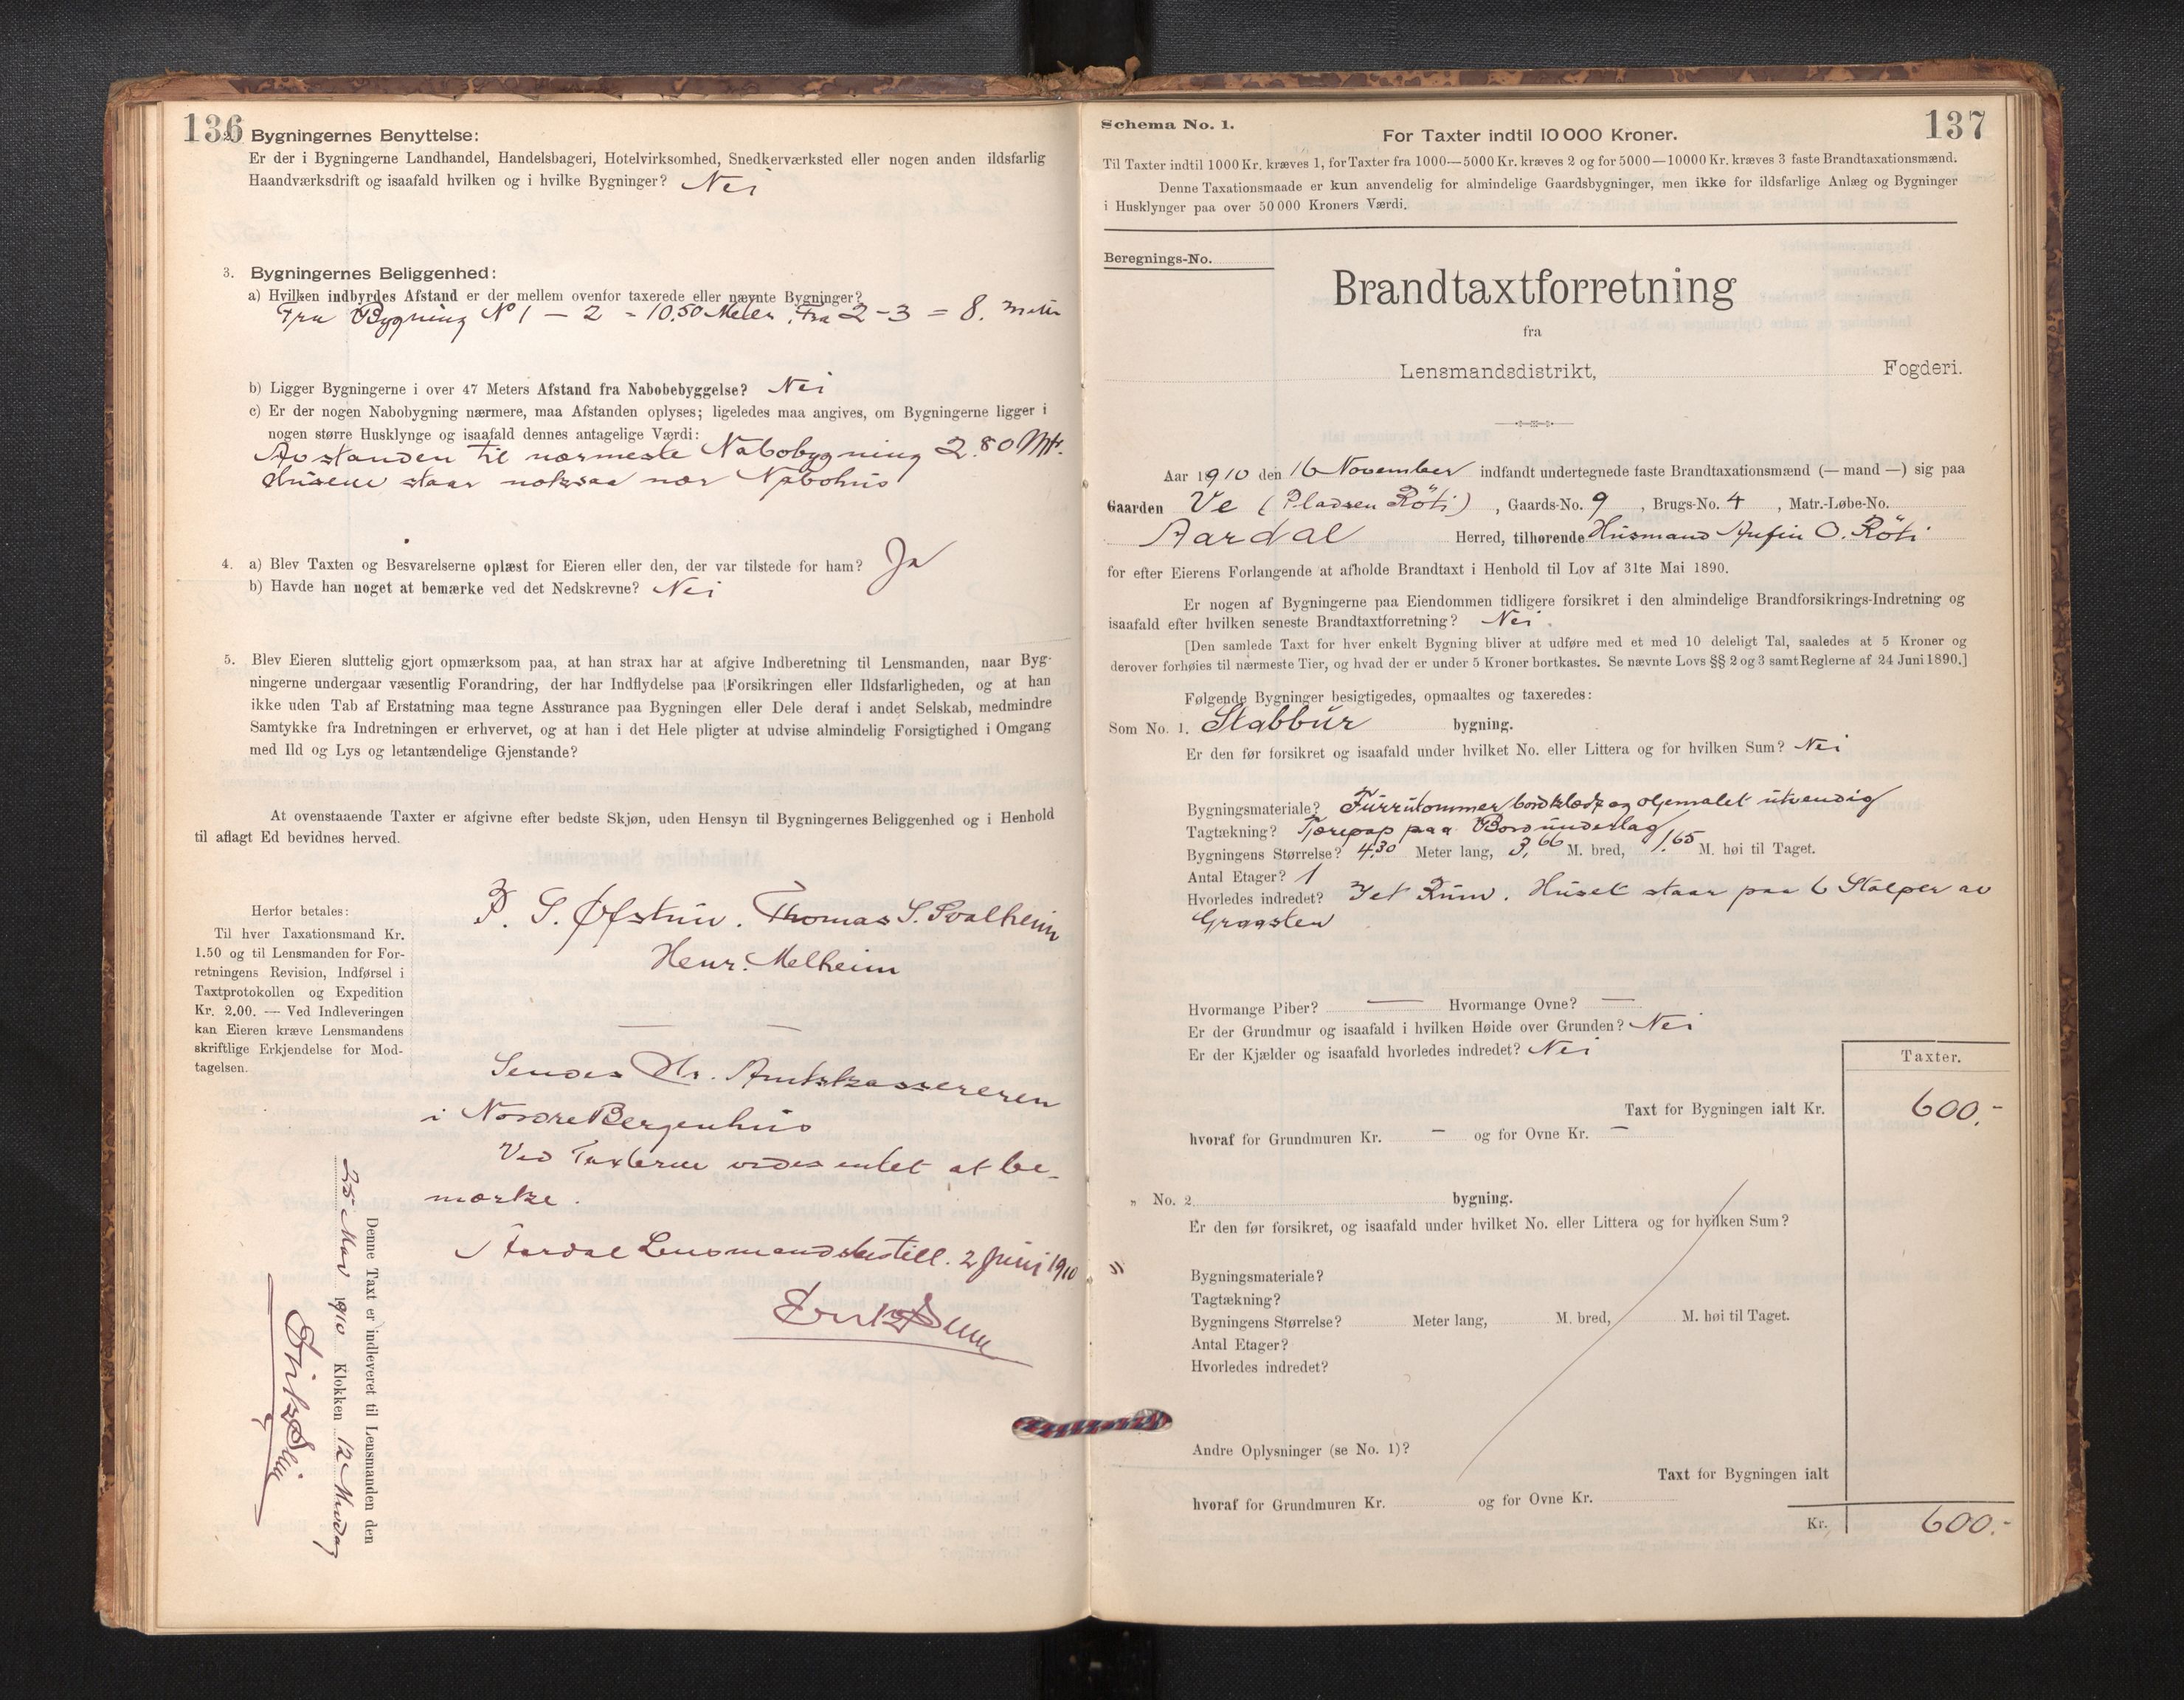 136
2. Bygningernes Benyttelse:
Er der i Bygningerne Landhandel, Handelsbageri, Hotelvirksomhed, Snedkerværksted eller nogen anden ildsfarlig
Haandværksdrift og isaafald hvilken og i hvilke Bygninger? Nei
3. Bygningernes Beliggenhed:
a) Hvilken indbyrdes Afstand er der mellem ovenfor taxerede eller nævnte Bygninger?
Fra Bygning No 1 — 2 = 10.50 Meter, Fra 2 - 3 = 8. meter
b) Ligger Bygningerne i over 47 Meters Afstand fra Nabobebyggelse? Nei
c) Er der nogen Nabobygning nærmere, maa Afstanden oplyses; ligeledes maa angives, om Bygningerne ligger i
nogen større Husklynge og isaafald dennes antagelige Værdi:
Avstanden til nærmeste Nabobygning 2.80 Mtr.
Husene staar noksaa nær Nabohus
4. a) Blev Taxten og Besvarelserne oplæst for Eieren eller den, der var tilstede for ham? Ja
b) Havde han noget at bemærke ved det Nedskrevne? Nei
5. Blev Eieren sluttelig gjort opmærksom paa, at han strax har at afgive Indberetning til Lensmanden, naar Byg-
ningerne undergaar væsentlig Forandring, der har Indflydelse paa Forsikringen eller Ildsfarligheden, og at han
ikke uden Tab af Erstatning maa tegne Assurance paa Bygningen eller Dele deraf i andet Selskab, medmindre
Samtykke fra Indretningen er erhvervet, og at han i det Hele pligter at udvise almindelig Forsigtighed i Omgang
med Ild og Lys og letantændelige Gjenstande?
At ovenstaaende Taxter er afgivne efter bedste Skjøn, uden Hensyn til Bygningernes Beliggenhed og i Henhold
til aflagt Ed bevidnes herved.
P. S. Øfstun. Thomas S. Svalheim
Henr. Melheim
Herfor betales:
Til hver Taxationsmand Kr.
1.50 og til Lensmanden for For-
retningens Revision, Indførsel i
Taxtprotokollen og Expedition
Kr. 2.00. — Ved Indleveringen
kan Eieren kræve Lensmandens
skriftlige Erkjendelse for Mod-
tagelsen.
Sendes Hr. Amtskassereren
i Nordre Bergenhus
Ved Taxterne vides intet at be-
mærke.
Aardal Lensmandsbestill. 2 Juni 1910
Denne Taxt er indleveret til Lensmanden den
25 Mai 1910 Klokken 12 Middag
137
Schema No. 1.
For Taxter indtil 10 000 Kroner.
Til Taxter indtil 1000 Kr. kræves 1, for Taxter fra 1000—5000 Kr. kræves 2 og for 5000—10000 Kr. kræves 3 faste Brandtaxationsmænd.
Denne Taxationsmaade er kun anvendelig for almindelige Gaardsbygninger, men ikke for ildsfarlige Anlæg og Bygninger
i Husklynger paa over 50 000 Kroners Værdi.
Beregnings-No.
Brandtaxtforretning
fra
Lensmandsdistrikt, Fogderi.
Aar 1910 den 16 November indfandt undertegnede faste Brandtaxationsmænd (— mand —) sig paa
Gaarden Ve (Pladsen Röti), Gaards-No. 9, Brugs-No. 4, Matr.-Løbe-No.
Aardal Herred, tilhørende Husmand Anfin O. Röti
for efter Eierens Forlangende at afholde Brandtaxt i Henhold til Lov af 31te Mai 1890.
Er nogen af Bygningerne paa Eiendommen tidligere forsikret i den almindelige Brandforsikrings-Indretning og
isaafald efter hvilken seneste Brandtaxtforretning? Nei.
[Den samlede Taxt for hver enkelt Bygning bliver at udføre med et med 10 deleligt Tal, saaledes at 5 Kroner og
derover forhøies til nærmeste Tier, og hvad der er under 5 Kroner bortkastes. Se nævnte Lovs §§ 2 og 3 samt Reglerne af 24 Juni 1890.]
Følgende Bygninger besigtigedes, opmaaltes og taxeredes:
Som No. 1. Stabbur bygning.
Er den før forsikret og isaafald under hvilket No. eller Littera og for hvilken Sum? Nei
Bygningsmateriale? Furrutommer bordklædt og oljemalet utvendig
Tagtækning? Tjærepap paa Bordunderlag
Bygningens Størrelse? 4.30 Meter lang, 3,66 M. bred, 1,65 M. høi til Taget.
Antal Etager? 1
Hvorledes indredet? I et Rum. Huset staar paa 6 Stolper av
Graasten
Hvormange Piber? — Hvormange Ovne? —
Er der Grundmur og isaafald i hvilken Høide over Grunden? Nei
Er der Kjælder og isaafald hvorledes indredet? Nei
Taxter.
Taxt for Bygningen ialt Kr. 600.-
hvoraf for Grundmuren Kr. — og for Ovne Kr. —
„ No. 2 bygning.
Er den før forsikret, og isaafald under hvilket No. eller Littera og for hvilken Sum?
Bygningsmateriale?
Tagtækning?
Bygningens Størrelse? Meter lang, M. bred, M. høi til Taget.
Antal Etager?
Hvorledes indredet?
Andre Oplysninger (se No. 1)?
Taxt for Bygningen ialt
hvoraf for Grundmuren Kr. og for Ovne Kr.
Kr. 600.-